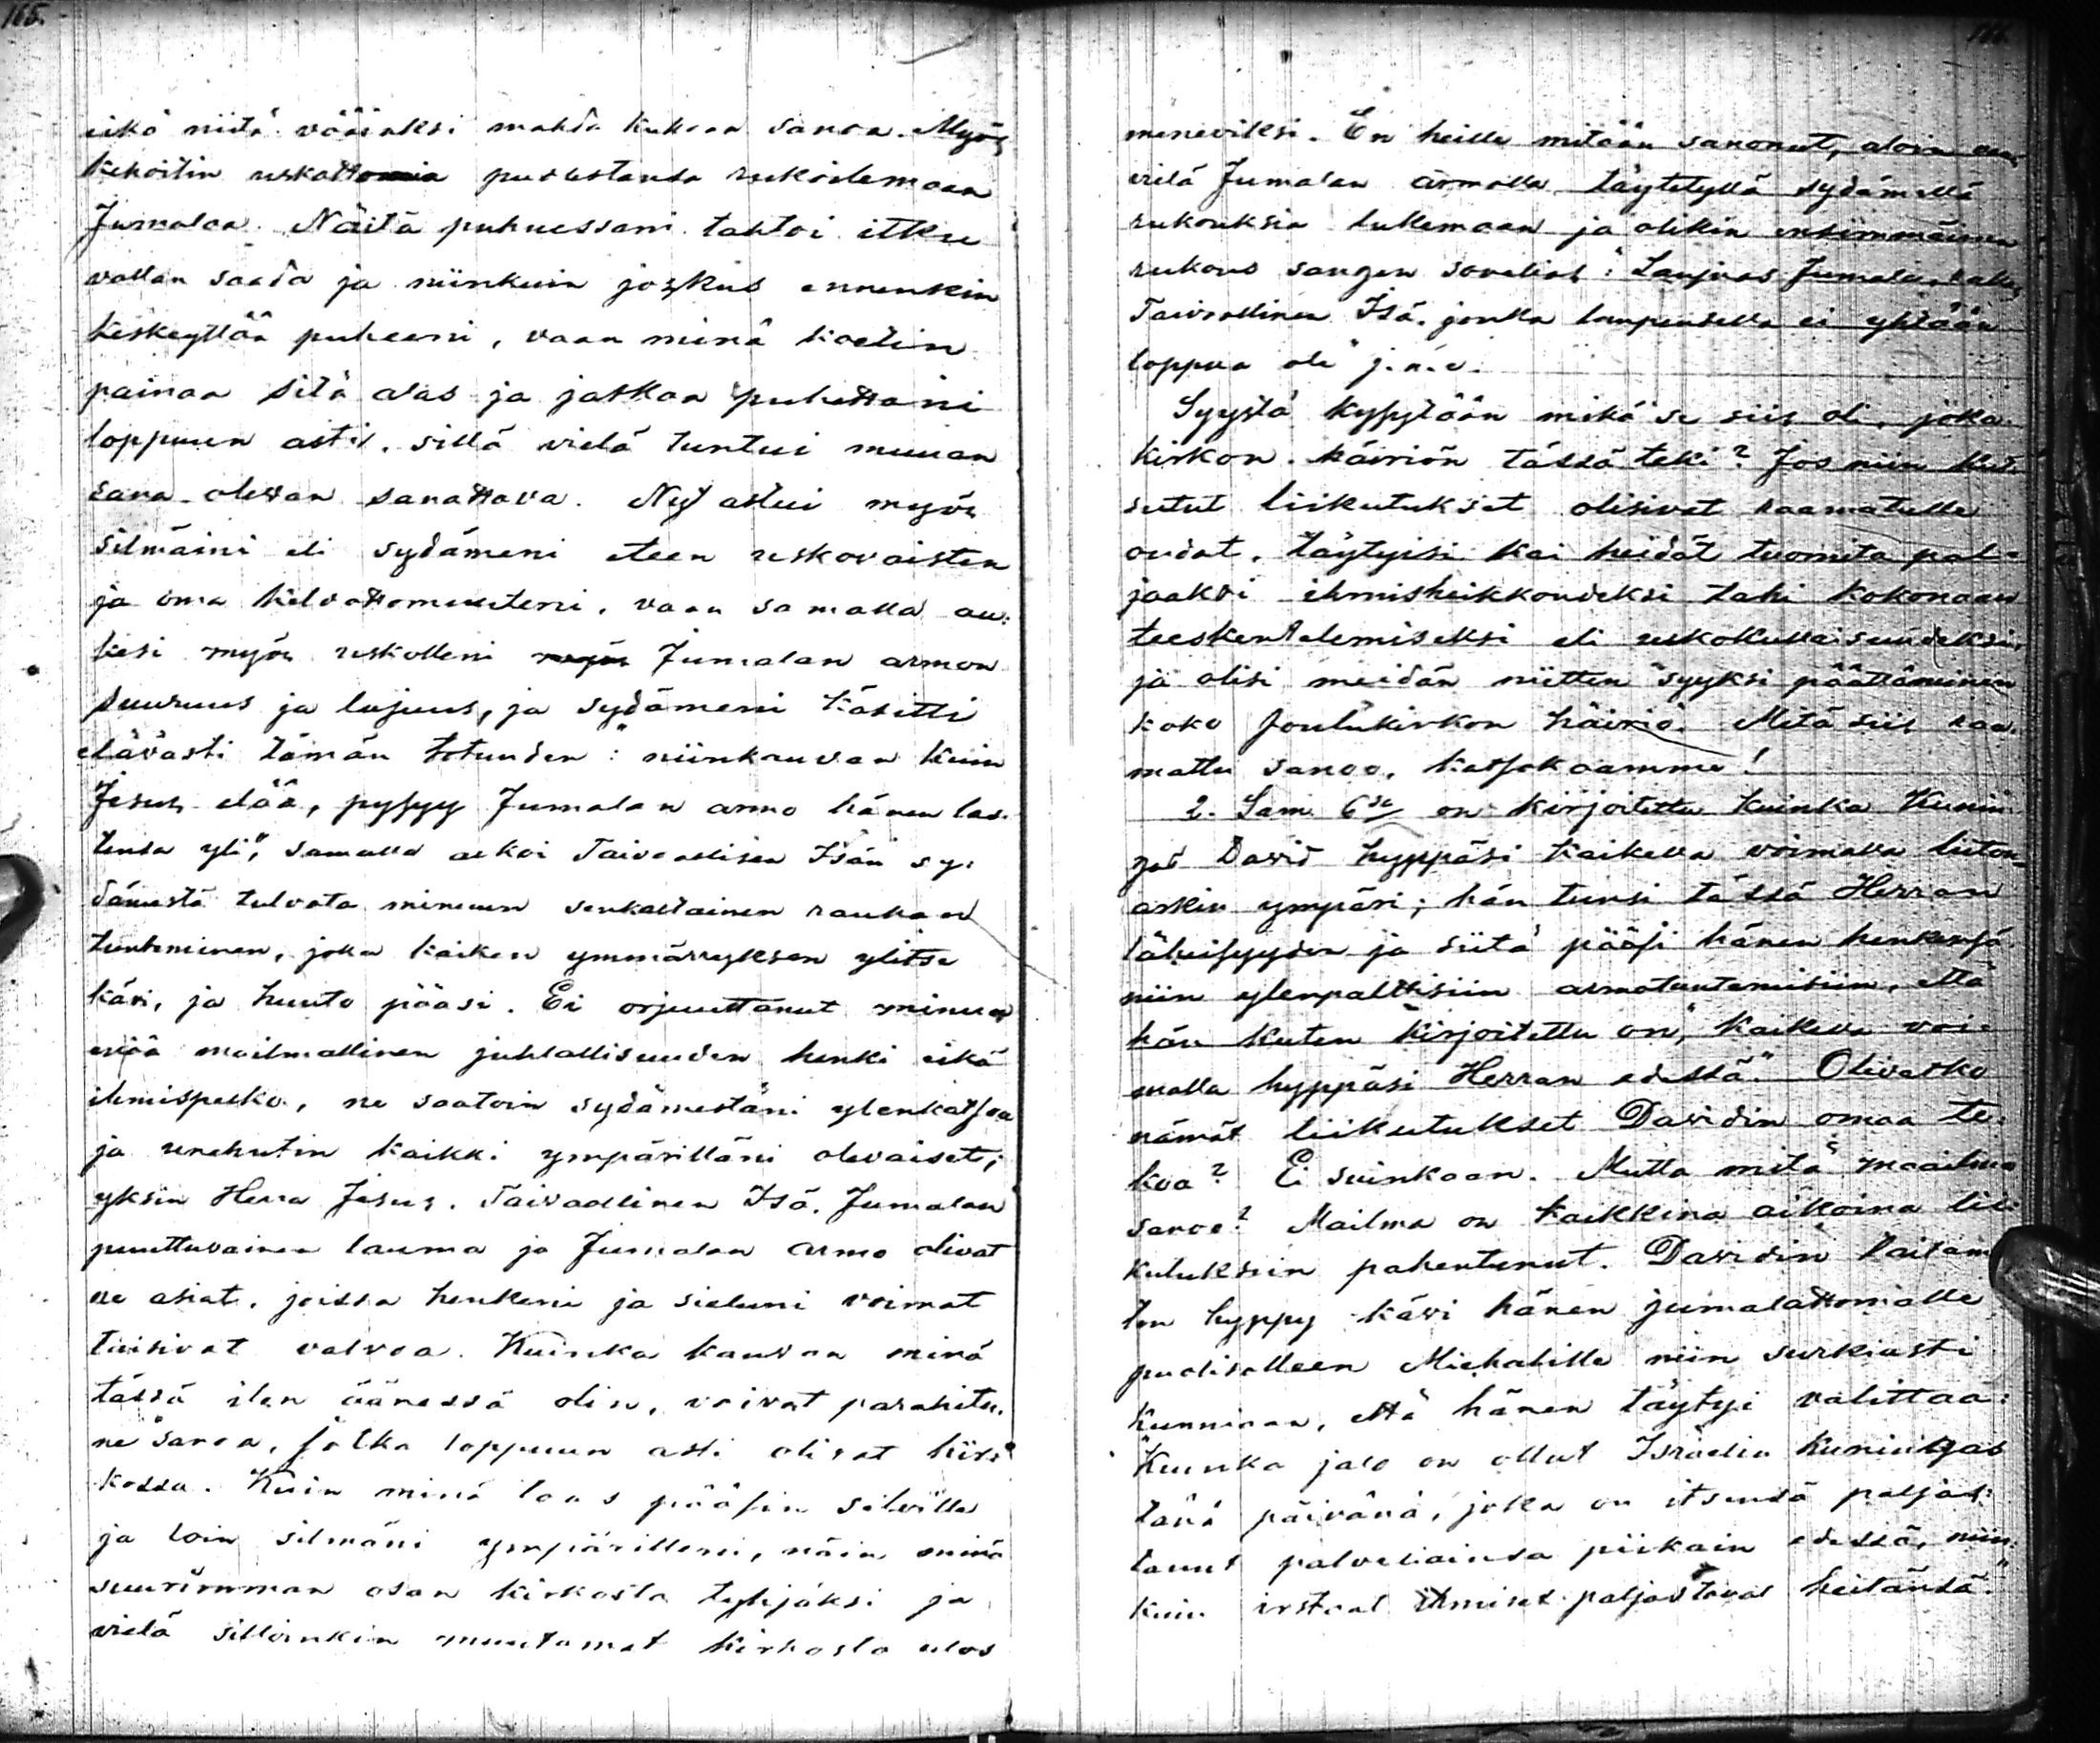 165.
eikä niitä vääräksi mahda kukaan sanoa. Myös
kehoitin uskottomia puolestansa rukoilemaan
Jumalaa. Näitä puhuessani tahtoi itku
vallan saada ja niinkuin joskus ennenkin
keskeyttää puheeni, vaan minä koetin
painaa sitä alas ja jatkaa puhettani
loppuun asti, sillä vielä tuntui muuan
sana olevan sanottava. Nyt astui myös
silmäini eli sydämeni eteen uskovaisten
ja oma kelvottomuuteni, vaan samalla au-
kesi myös uskolleni myös Jumalan armon
suuruus ja lujuus, ja sydämeni käsitti
elävästi tämän totuuden: "niinkauvan kuin
Jesus elää, pysyy Jumalan armo hänen las-
tensa yli", samalla alkoi Taivaallisen Isän sy-
dämestä tulvata minuun senkaltainen rauhan
tunteminen, joka kaiken ymmärryksen ylitse
kävi, ja huuto pääsi. Ei orjuuttanut minua
enää mailmallinen juhlallisuuden henki eikä
ihmispelko, ne saatoin sydämestäni ylenkatsoa
ja unehutin kaikki ympärilläni olevaiset;
yksin Herra Jesus, Taivaallinen Isä, Jumalan
puuttuvainen lauma ja Jumalan armo olivat
ne asiat, joissa henkeni ja sieluni voimat
taisivat valvoa. Kuinka kauvan minä
tässä ilon äänessä olin, voivat parahite-
ne sanoa, jotka loppuun asti olivat kirk-
kossa. Kuin minä taas pääsin selville
ja loin silmäni ympärilleni, näin minä
suurimman osan kirkosta tyhjäksi ja
vielä silloinkin muutamat kirkosta ulos
meneviksi. En heille mitään sanonut, aloin
vielä Jumalan armolla täytetyllä sydämellä
rukouksia lukemaan ja olikin ensimmäinen
rukous sangen sovelias: "Laupias Jumala, rakas
Taivaallinen Isä, jonka laupeudella ei yhtään
loppua ole" j.n.e.
Syystä kysytään mikä se siis oli, joka
kirkon häiriön tässä teki? Jos niin kut-
sutut liikutukset olisivat raamatulle
oudot, täytyisi kai heidät tuomita pal-
jaaksi ihmisheikkoudeksi tahi kokonaan
teeskentelemiseksi eli uskokullaisuudeksi,
ja olisi meidän niitten syyksi päättäminen
koko joulukirkon häiriö. Mitä siis raa-
mattu sanoo, katsokaamme!
2. Sam. 6 on kirjoitettu kuinka Kunin-
gas David hyppäsi kaikella voimalla liiton
arkin ympäri; hän tunsi tässä Herran
läheisyyden ja siitä pääsi hänen henkensä
niin ylenpalttisiin armotuntemisiin, että
hän kuten kirjoitettu on, "kaikella voi-
malla hyppäsi Herran edessä." Olivatko
nämät liikutukset Davidin omaa te-
koa? Ei suinkaan. Mutta mitä maailma
sanoo? Mailma on kaikkina aikoina lii-
kutuksiin pahentunut. Davidin
hyppy kävi hänen jumalattomalle
puolisolleen Michalille niin surkiasti
kunniaan, että hänen täytyi valittaa:
"Kuinka jalo on ollut Israelin kuningas
tänä päivänä, joka on itsensä paljas-
tanut palveliainsa piikain edessä, niin-
kuin irstaat ihmiset paljastavat heitänsä."